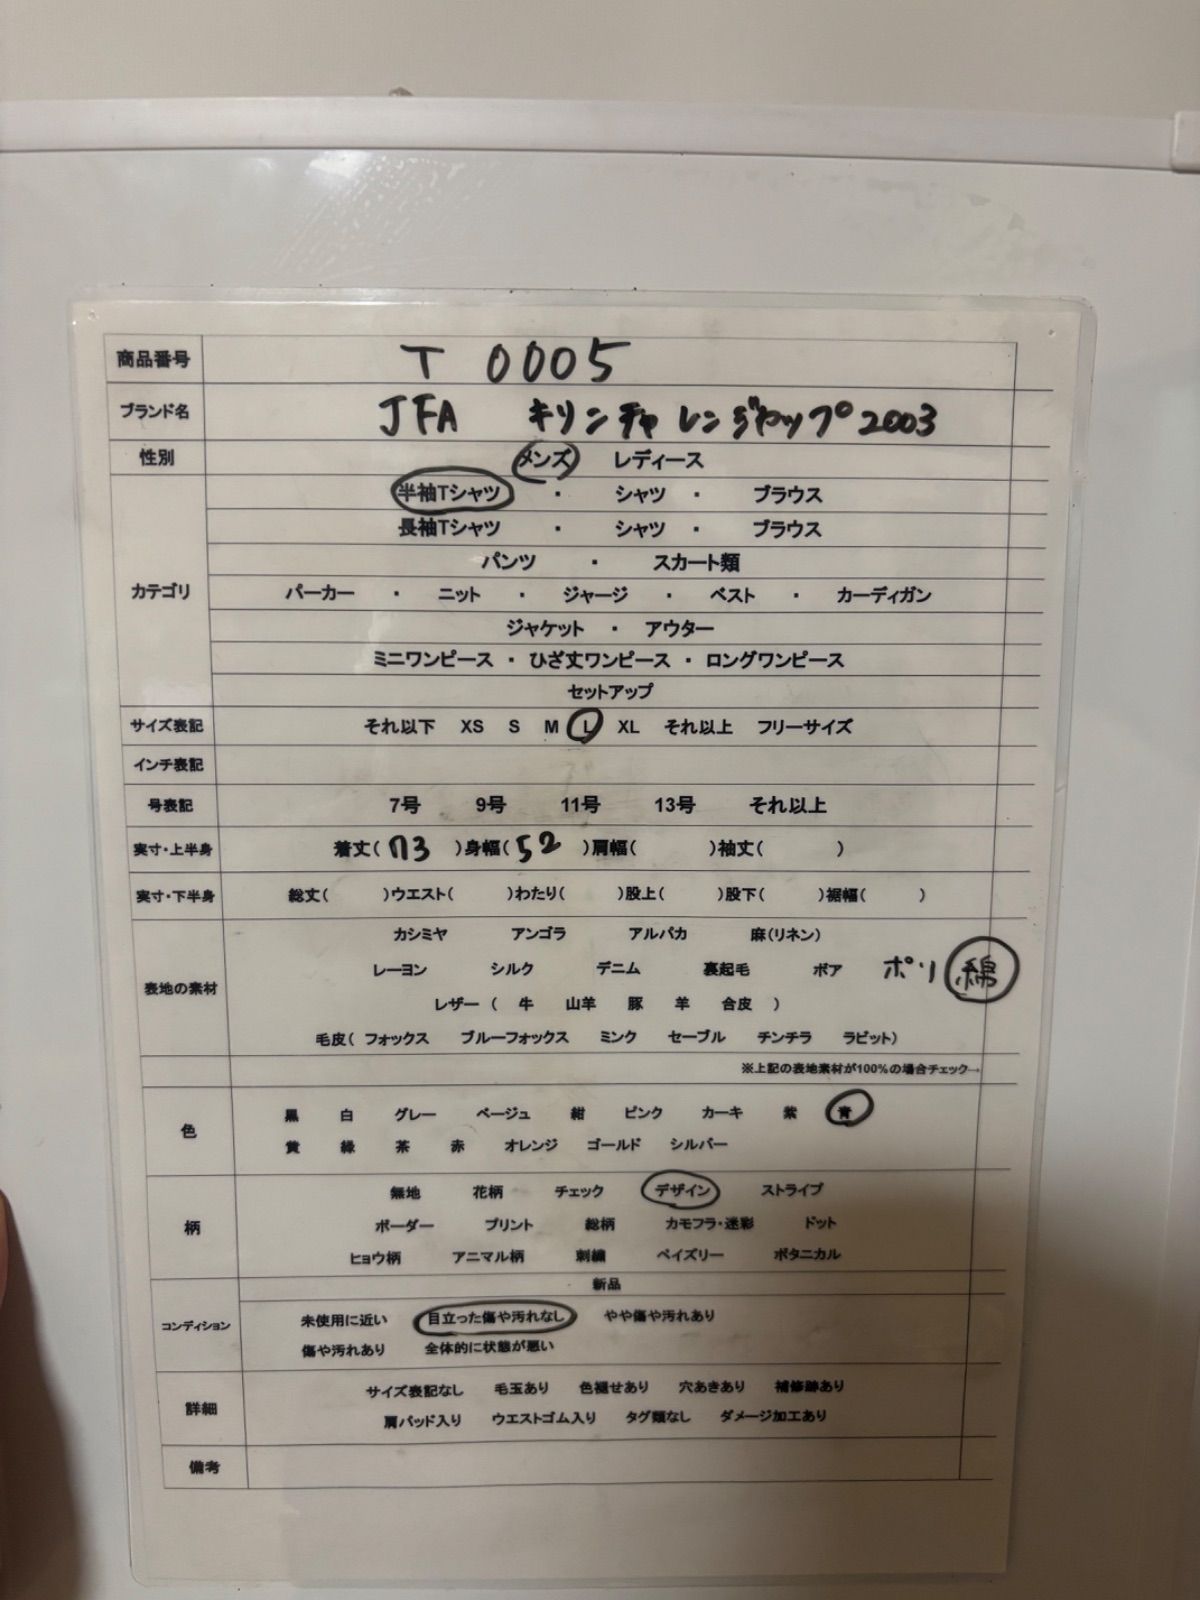 商品番号 T 0005
ブランド名 JFA キリンチャレンジャップ2003
性別 メンズ レディース
半袖Tシャツ ・ シャツ ・ ブラウス
長袖Tシャツ ・ シャツ ・ ブラウス
パンツ ・ スカート類
カテゴリ パーカー ・ ニット ・ ジャージ ・ ベスト ・ カーディガン
ジャケット ・ アウター
ミニワンピース ・ ひざ丈ワンピース ・ ロングワンピース
セットアップ
サイズ表記 それ以下 XS S M L XL それ以上 フリーサイズ
インチ表記
号表記 7号 9号 11号 13号 それ以上
実寸・上半身 着丈( 73 )身幅( 52 )肩幅( )袖丈( )
実寸・下半身 総丈( )ウエスト( )わたり( )股上( )股下( )裾幅( )
カシミヤ アンゴラ アルパカ 麻(リネン)
表地の素材 レーヨン シルク デニム 裏起毛 ボア ポリ 綿
レザー ( 牛 山羊 豚 羊 合皮 )
毛皮( フォックス ブルーフォックス ミンク セーブル チンチラ ラビット)
※上記の表地素材が100%の場合チェック→
色 黒 白 グレー ベージュ 紺 ピンク カーキ 紫 青
黄 緑 茶 赤 オレンジ ゴールド シルバー
無地 花柄 チェック デザイン ストライプ
柄 ボーダー プリント 総柄 カモフラ・迷彩 ドット
ヒョウ柄 アニマル柄 刺繍 ペイズリー ボタニカル
新品
コンディション 未使用に近い 目立った傷や汚れなし やや傷や汚れあり
傷や汚れあり 全体的に状態が悪い
詳細 サイズ表記なし 毛玉あり 色褪せあり 穴あきあり 補修跡あり
肩パッド入り ウエストゴム入り タグ類なし ダメージ加工あり
備考